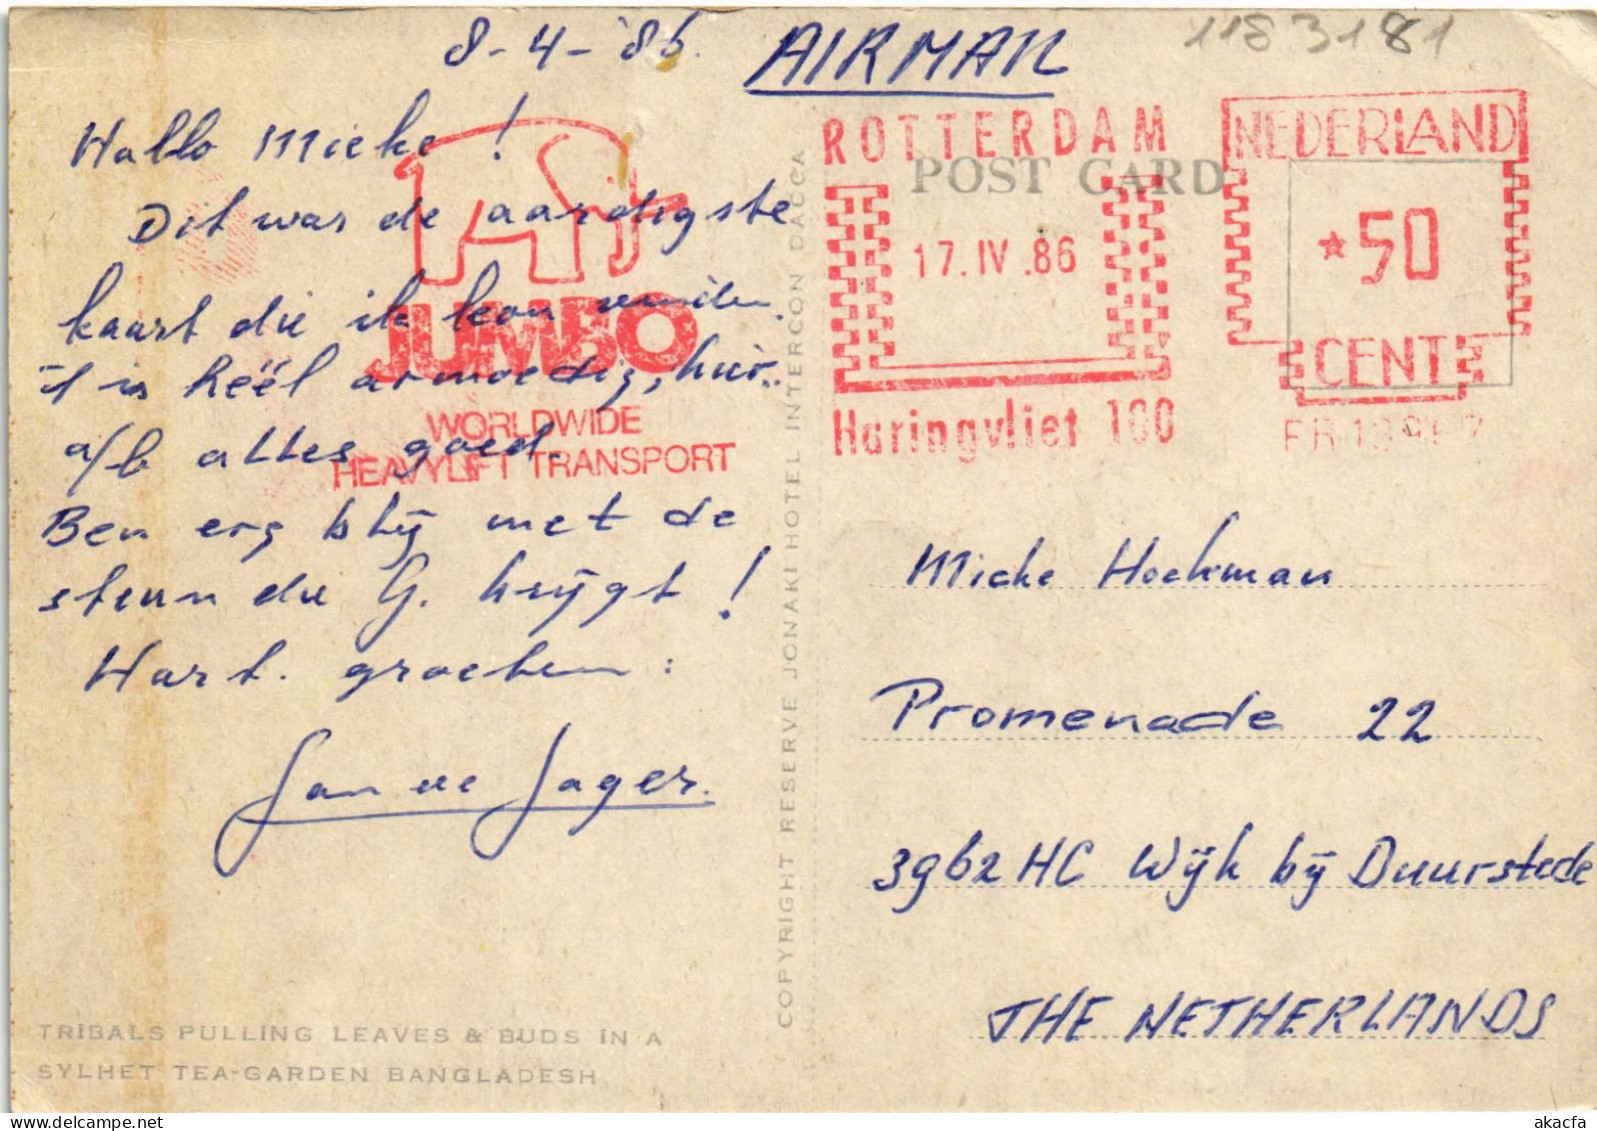 1183181
8-4-'86.
AIRMAIL
Hallo Mieke!
Dit was de aardigste
kaart die ik kon vinden.
't is heël armoedig, hier.
a/b alles goed.
Ben erg blij met de
steun die G. krijgt!
Hart. groeten:
Jan de Jager.
JUMBO
WORLDWIDE
HEAVYLIFT TRANSPORT
TRIBALS PULLING LEAVES & BUDS IN A
SYLHET TEA-GARDEN BANGLADESH
COPYRIGHT RESERVE JONAKI HOTEL INTERCON DACCA
POST CARD
ROTTERDAM
17.IV.86
Haringvliet 100
NEDERLAND
*50
CENT
Mieke Hoekman
Promenade 22
3962 HC Wijk bij Duurstede
THE NETHERLANDS
akacfa